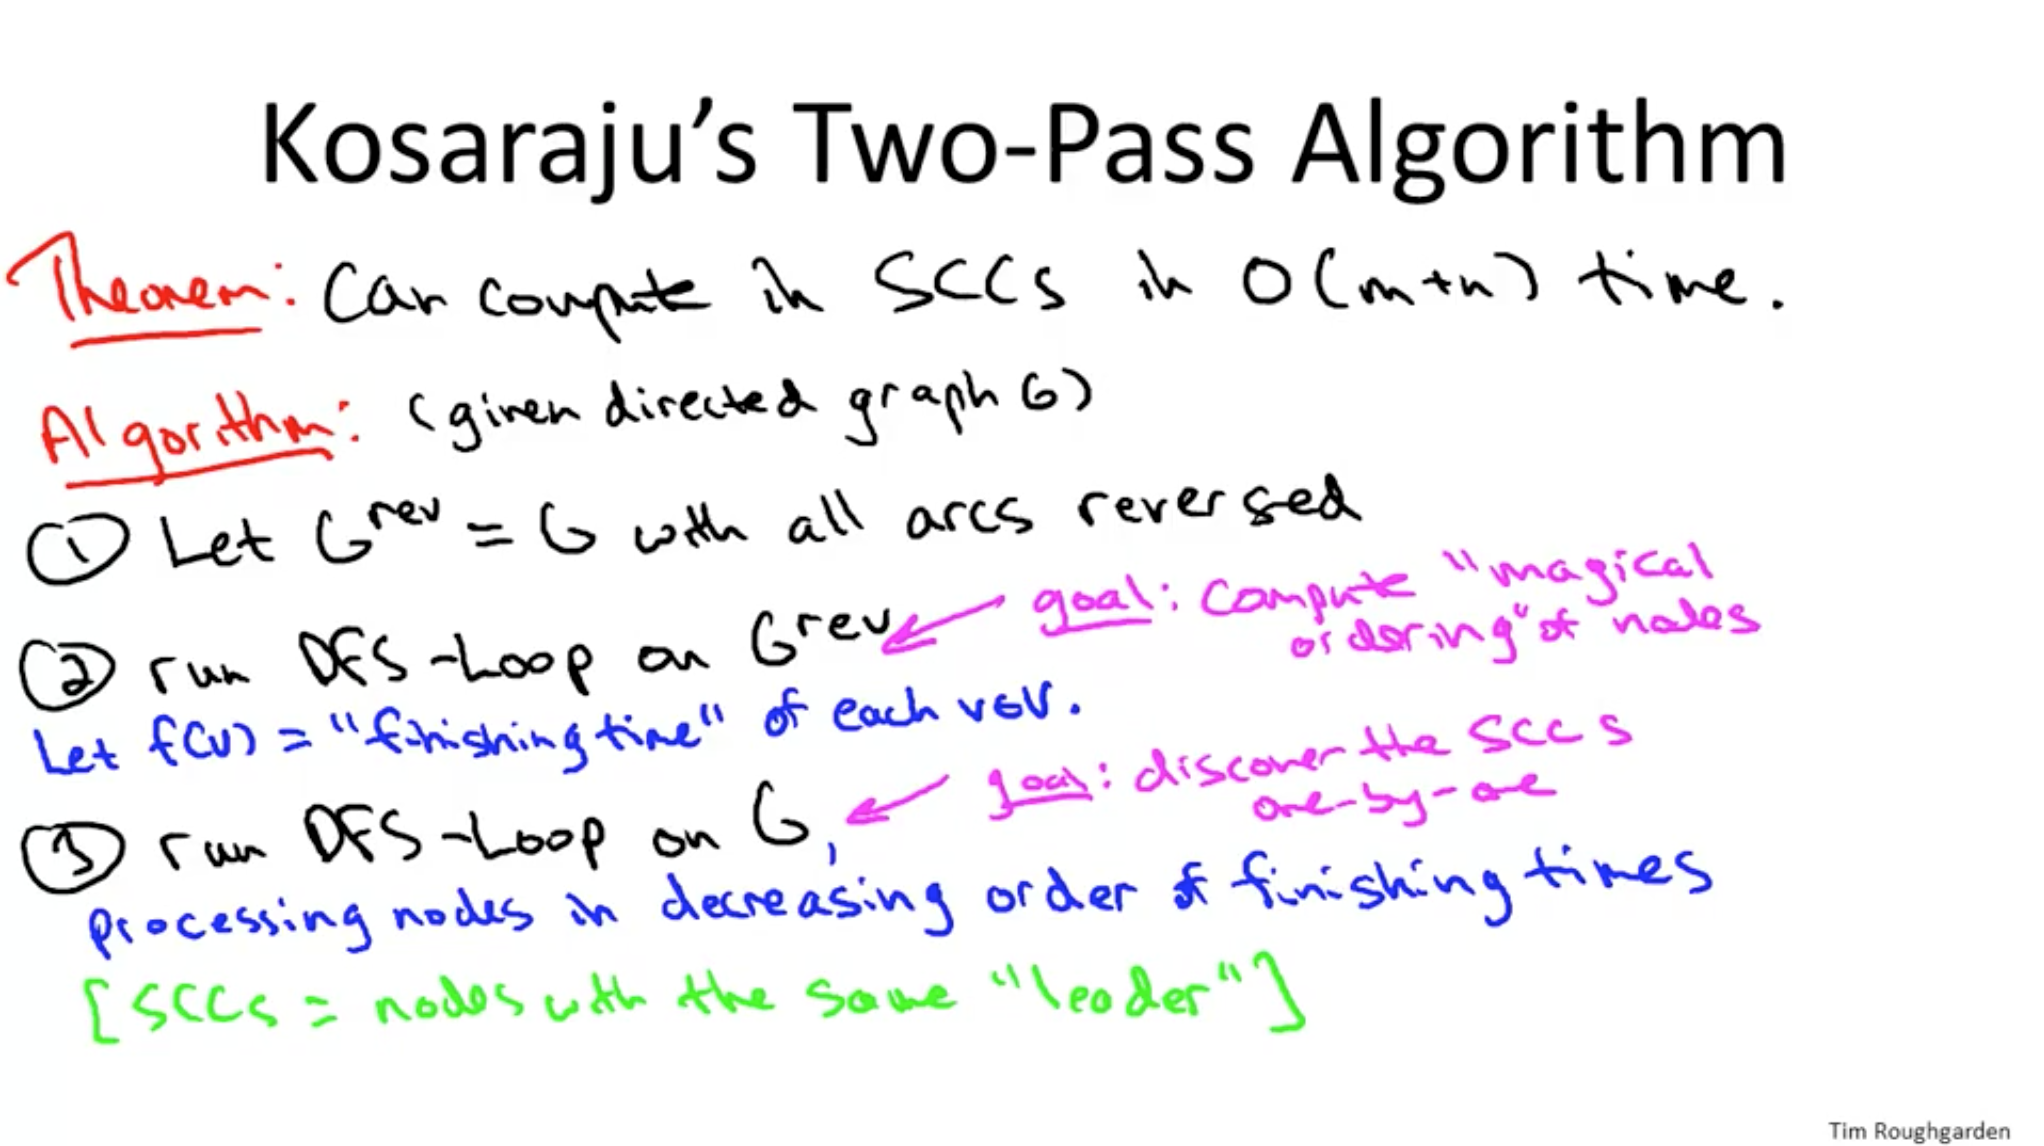 Kosaraju's Two-Pass Algorithm
Theorem: Can compute in SCCs in O(m+n) time.
Algorithm: (given directed graph G)
① Let G^rev = G with all arcs reversed
② run DFS-Loop on G^rev
goal: compute "magical
ordering" of nodes
Let f(v) = "finishing time" of each v∈V.
③ run DFS-Loop on G,
goal: discover the SCCs
one-by-one
processing nodes in decreasing order of finishing times
[SCCs = nodes with the same "leader"]
Tim Roughgarden